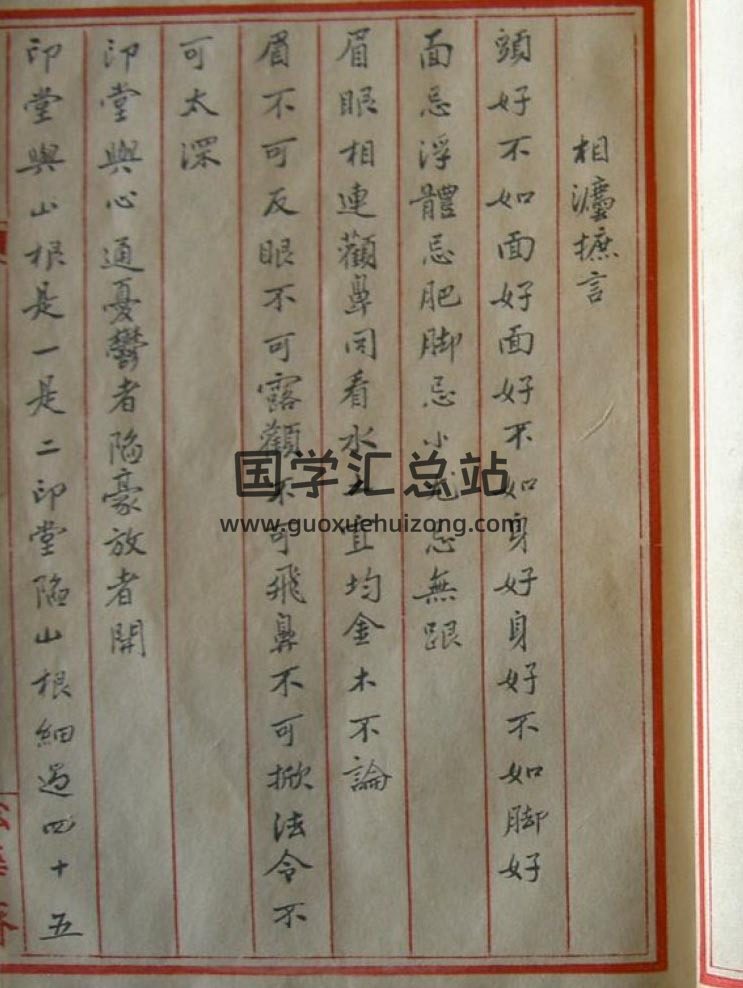 相灋摭言
頭好不如面好面好不如身好身好不如脚好
面忌浮體忌肥脚忌小尤忌無跟
眉眼相連顴鼻同看水土宜均金木不論
眉不可反眼不可露顴不可飛鼻不可掀法令不
可太深
印堂與心通憂鬱者陷豪放者開
印堂與山根是一是二印堂陷山根細過四十五
国学汇总站
www.guoxuehuizong.com